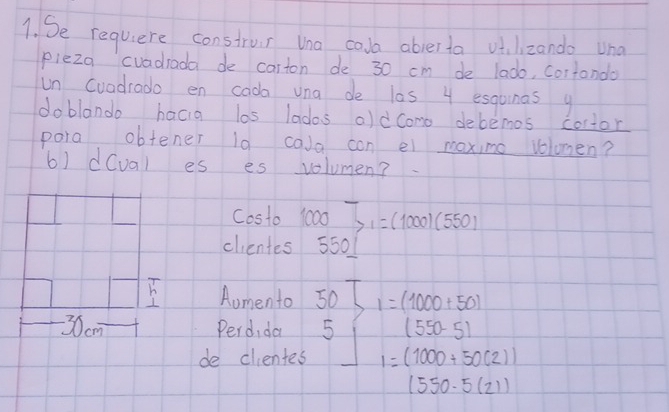 1. Se requiere construir una caja abierta utilizando una
pieza cuadrada de carton de 30 cm de lado. Cortando
un cuadrado en cada una de las 4 esquinas y
doblando hacia los lados a) ¿Como debemos cortar
para obtener la caja con el maximo volumen?
b) ¿Cual es es volumen? -
Costo 1000 } 1=(1000)(550)
clientes 550
h
30cm
Aumento 50 } 1=(1000+50)
Perdida 5 (550-5)
de clientes 1=(1000+50(2))
(550-5(2))